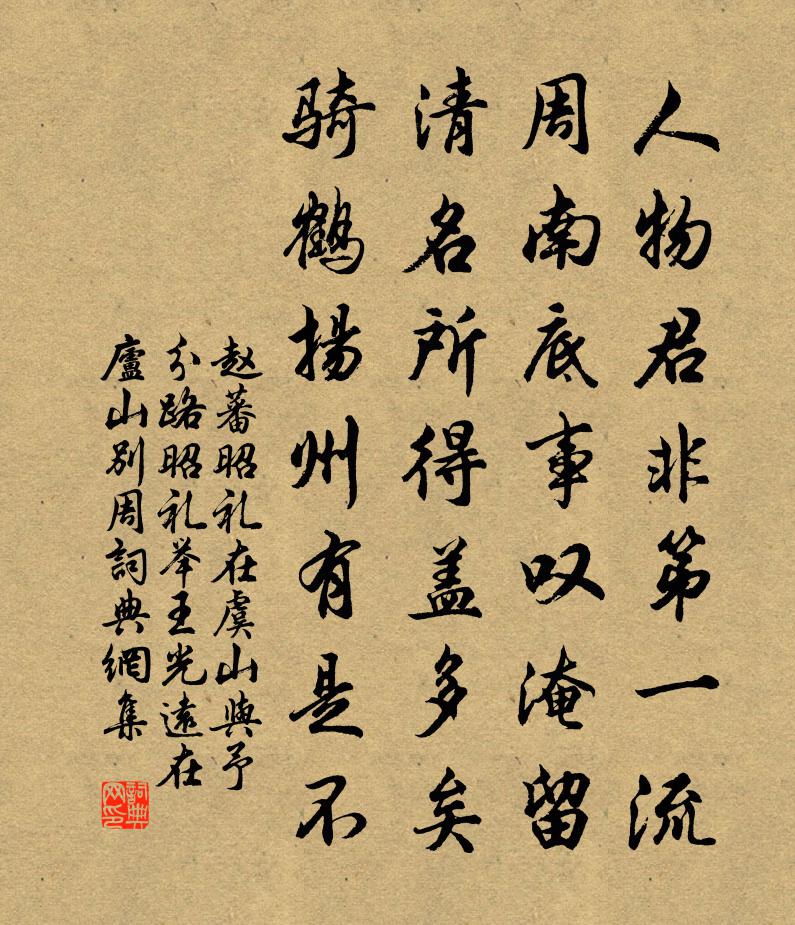 人物君非第一流
周南底事叹淹留
清名所得盖多矣
骑鹤扬州有是不
赵蕃昭礼在虞山與予
分路昭礼举王光遠在
廬山别周詞典網集
詞典网印